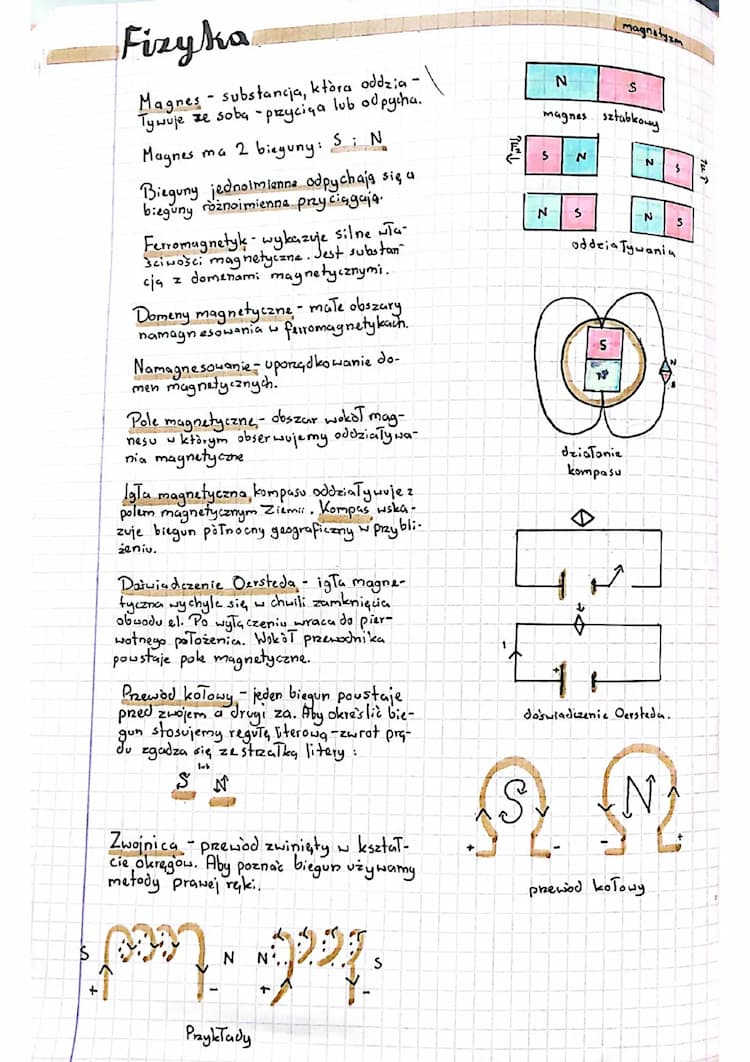 Fizyka
magnetyzm
Magnes - substancja, która oddzia-
ływuje ze sobą - przyciąga lub odpycha.
Magnes ma 2 bieguny: S i N
Bieguny jednoimienne odpychają się a
bieguny różnoimienne przyciągają.
Ferromagnetyk - wykazuje silne wła-
ściwości magnetyczne. Jest substan-
cją z domenami magnetycznymi.
Domeny magnetyczne - małe obszary
namagnesowania w ferromagnetykach.
Namagnesowanie - uporządkowanie do-
men magnetycznych.
Pole magnetyczne - obszar wokół mag-
nesu w którym obserwujemy oddziaływa-
nia magnetyczne
Igła magnetyczna kompasu oddziaływuje z
polem magnetycznym Ziemii. Kompas wska-
zuje biegun północny geograficzny w przybli-
żeniu.
Doświadczenie Oersteda - igła magne-
tyczna wychyla się w chwili zamknięcia
obwodu el. Po wyłączeniu wraca do pier-
wotnego położenia. Wokół przewodnika
powstaje pole magnetyczne.
Przewód kołowy - jeden biegun powstaje
przed zwojem a drugi za. Aby określić bie-
gun stosujemy regułę literową - zwrot prą-
du zgadza się ze strzałką litery:
S lub N
Zwojnica - przewód zwinięty w kształ-
cie okręgów. Aby poznać biegun używamy
metody prawej ręki.
S + - N N + - S
Przykłady
N S
magnes sztabkowy
S N N S
N S N S
oddziaływania
S
N
N
S
działanie
kompasu
I
+
doświadczenie Oersteda.
S N
+ - - +
przewód kołowy